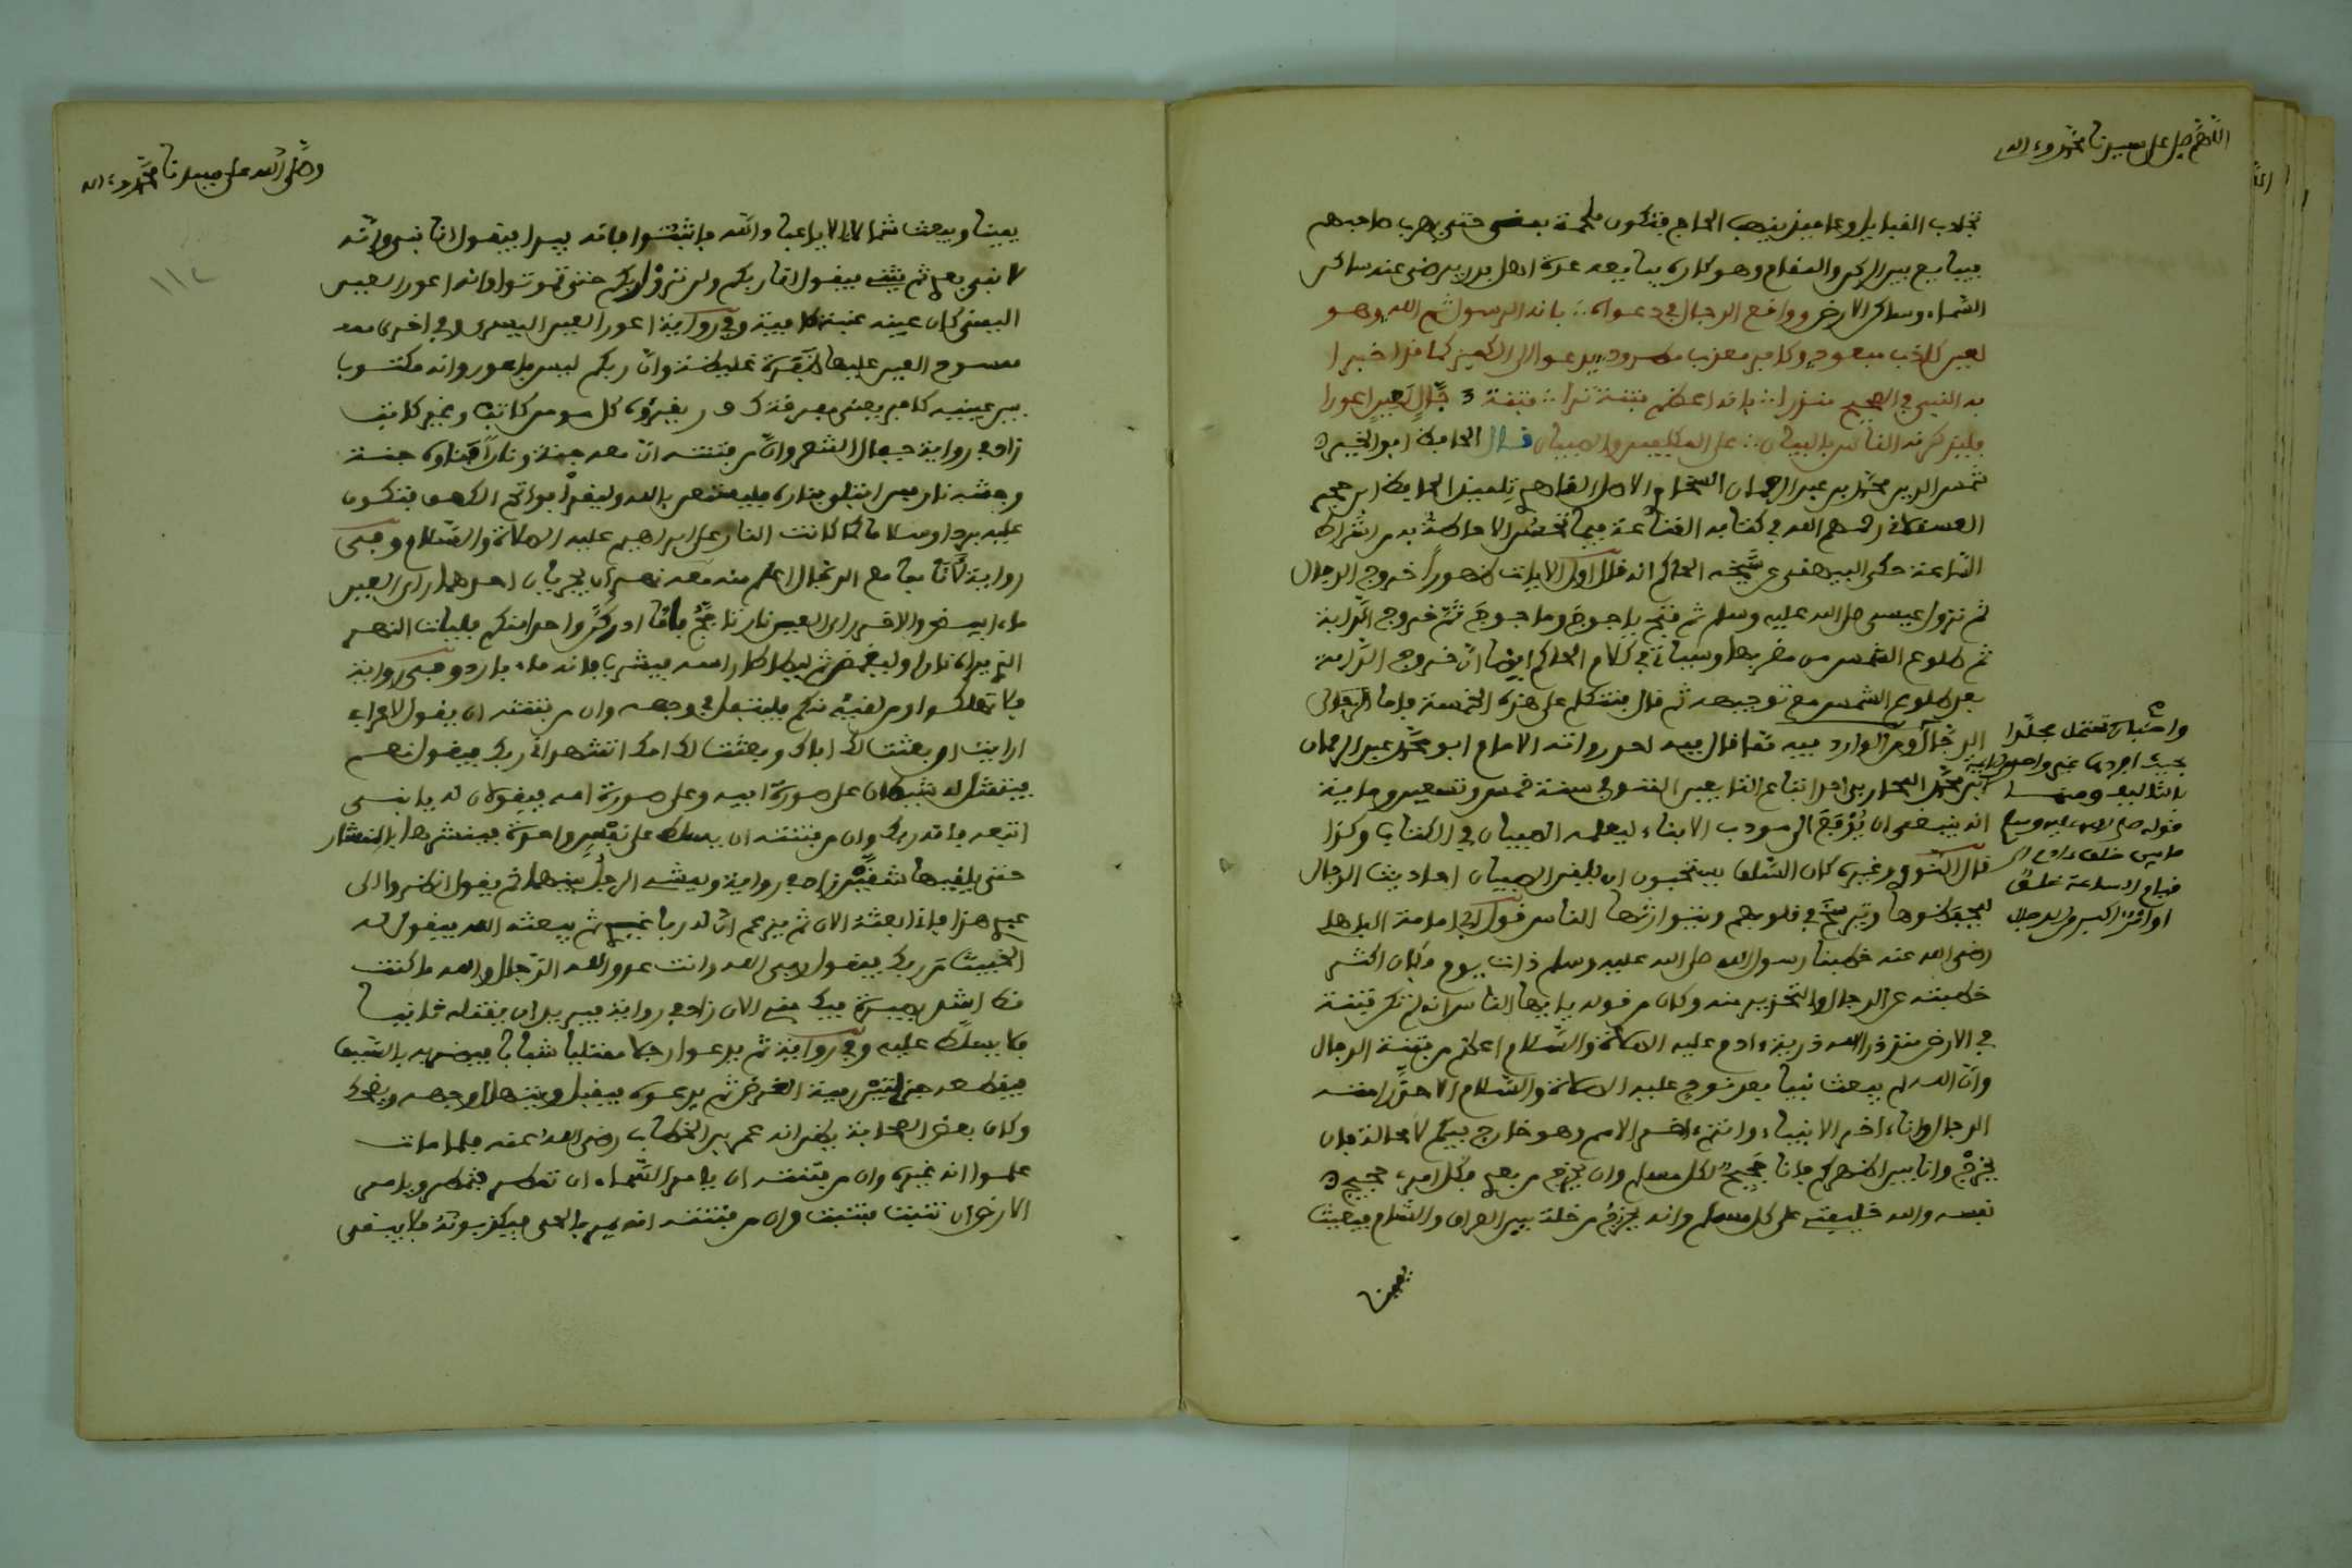 اللهم صل على سيدنا محمد وءاله
تحارب القبايل وعامئذ ينهب الحاج فتكون ملحمة بمنى حتى يهرب صاحبهم
فيبايع بين الركن والمقام وهو كاره يبايعه عدة اهل بدر يرضى عنه ساكن
السماء وساكن الارض وواقع الدجال في دعواه بانه الرسول ثم الله وهو
لعين كاذب
وكافر معذب مطرود يدعو الى
كما قد اخبرا
به النبي في الصحيح منذرا بانه اعظم فتنة ترا فتنة دجال لعين اعورا
فليذكرنه الناس بالبيان على المكلفين والصبيان قال الحافظ ابو الخير
شمس الدين محمد بن عبد الرحمان السخاوي الاصل القاهري تلميذ الحافظ ابن حجر
العسقلاني رحمهم الله في كتابه القناعة فيما تحسن الاحاطة به من اشراط
الساعة حكى البيهقي عن شيخه الحاكم انه قال اول الايات ظهورا خروج الدجال
ثم نزول عيسى صلى الله عليه وسلم ثم فتح ياجوج وماجوج ثم خروج الدابة
ثم طلوع الشمس من مغربها وسياتي في كلام الحاكم ايضا ان خروج الدابة
بعد طلوع الشمس مع توجيهه ثم قال فنتكلم على هذه الخمسة فاما الاولى
الدجال ومن الوارد فيه مما قال فيه احد رواته الامام ابو محمد عبد الرحمان
بن محمد المحاربي احد اتباع التابعين المتوفى سنة خمس وتسعين وماية
انه ينبغي ان يدفع الى مودب الابناء ليعلمه الصبيان في الكتاب وكذا
قال
وغيره كان السلف يستحبون ان يلقن الصبيان احاديث الدجال
ليحفظوها وترسخ في قلوبهم ويتوارثها الناس قول ابي امامة الباهلي
رضي الله عنه خطبنا رسول الله صلى الله عليه وسلم ذات يوم فكان اكثر
خطبته عن الدجال والتحذير منه وكان من قوله يا ايها الناس انه لم تكن فتنة
في الارض منذ ذرا الله ذرية ءادم عليه الصلاة والسلام اعظم من فتنة الدجال
وان الله لم يبعث نبيا بعد نوح عليه الصلاة والسلام الا حذر امته
الدجال وانا ءاخر الانبياء وانتم ءاخر الامم وهو خارج فيكم لا محالة فان
يخرج وانا بين اظهركم فانا حجيج لكل مسلم وان يخرج من بعدي فكل امرء حجيج
نفسه والله خليفتي على كل مسلم وانه يخرج من خلة بين العراق والشام فيعيث
يمينا
بحيث افردها غير واحد
بالتاليف ومنها
قوله صلى الله عليه وسلم
ما بين خلق ءادم الى
قيام الساعة خلق
او امر اكبر من الدجال
وصلى الله على سيدنا محمد وءاله
١١٢
يمينا ويعيث شمالا الا يا عباد الله فاثبتوا فانه يبدا فيقول انا نبي وانه
لا نبي بعدي ثم يثني فيقول انا ربكم ولن تروا ربكم حتى تموتوا وانه اعور العين
اليمنى كان عينه عنبة طافية وفي رواية اعور العين اليسرى وفي اخرى
ممسوح العين عليها ظفرة غليظة وان ربكم ليس باعور وانه مكتوبا
بين عينيه كافر يعني مفرقة ك ف ر يقرؤه كل مومن كاتب وغير كاتب
زاد في رواية جفال الشعر وان من فتنته ان معه جنة ونارا فناره جنة
وجنته نار فمن ابتلي بناره فليستغث بالله وليقرا فواتح الكهف فتكون
عليه بردا وسلاما كما كانت النار على ابراهيم عليه الصلاة والسلام وفي
رواية لانا بما مع الدجال اعلم منه معه نهران يجريان احدهما راى العين
ماء ابيض والاخر راى العين نار تاجج فاما ادركن احدا منكم فليات النهر
الذي يراه نارا وليغمض ثم ليطاطا راسه فيشرب فانه ماء بارد وفي رواية
فلا تهلكوا ومن لقيه منكم فليتفل في وجهه وان من فتنته ان يقول لاعرابي
ارايت ان بعثت لك اباك وبعثت لك امك اتشهد اني ربك فيقول نعم
فيتمثل له شيطان على صورة ابيه وعلى صورة امه فيقولان له يا بني
اتبعه فانه ربك وان من فتنته ان يسلط على نفس واحدة فينشرها بالمنشار
حتى يلقيها شقين زاد في رواية ويمشي الدجال بينهما ثم يقول انظروا الى
عبدي هذا فاني ابعثه الان ثم يزعم ان له ربا غيري ثم يبعثه الله فيقول له
الخبيث من ربك فيقول ربي الله وانت عدو الله الدجال والله ما كنت
قط اشد بصيرة فيك مني الان زاد في رواية فيريد ان يقتله ثانيا
فلا يسلط عليه وفي رواية ثم يدعوا رجلا ممتليا شبابا فيضربه بالسيف
فيقطعه جزلتين رمية الغرض ثم يدعوه فيقبل ويتهلل وجهه ويضحك
وكان بعض الصحابة يظن انه عمر بن الخطاب رضي الله عنه فلما مات
علموا انه غيره وان من فتنته ان يامر السماء ان تمطر فتمطر ويامر
الارض ان تنبت فتنبت وان من فتنته انه يمر بالحي فيكذبونه فلا يبقى